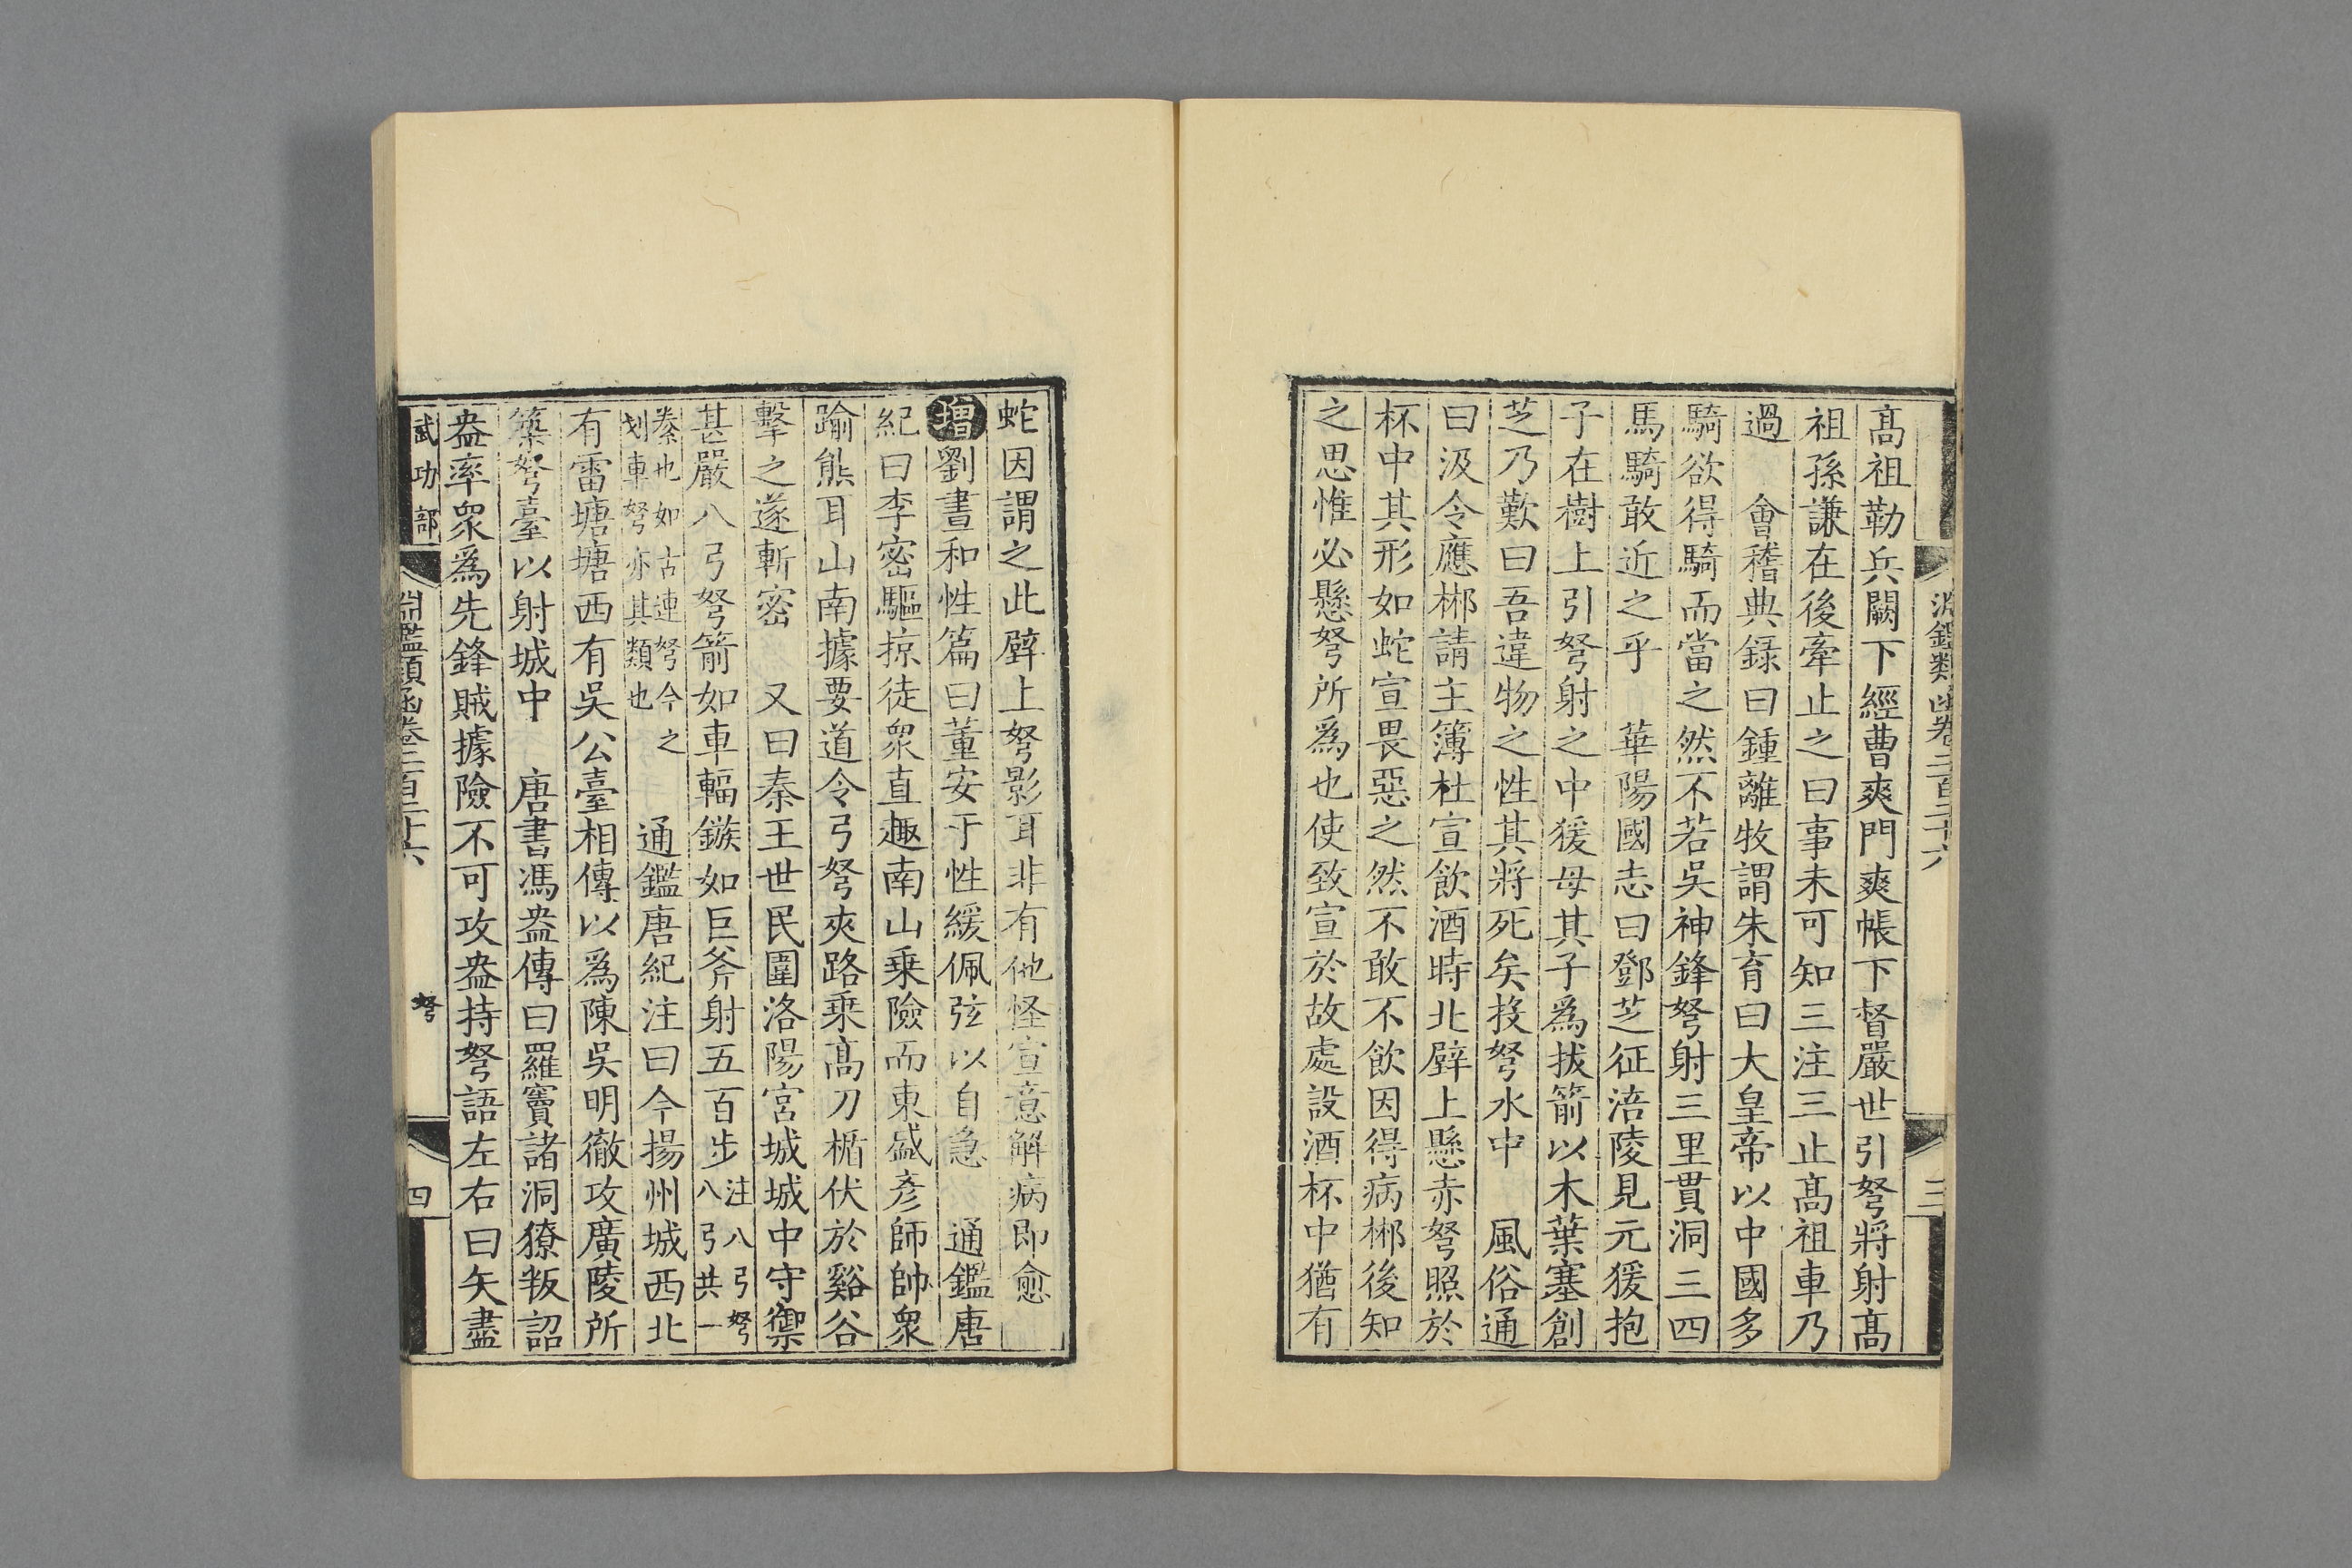 淵鑑類函卷二百二十六
三
高祖勒兵闕下經曹爽門爽帳下督嚴世引弩將射高
祖孫謙在後牽止之曰事未可知三注三止高祖車乃
過　會稽典録曰鍾離牧謂朱育曰大皇帝以中國多
騎欲得騎而當之然不若吳神鋒弩射三里貫洞三四
馬騎敢近之乎　華陽國志曰鄧芝征涪陵見元猨抱
子在樹上引弩射之中猨母其子爲拔箭以木葉塞創
芝乃歎曰吾違物之性其將死矣投弩水中　風俗通
曰汲令應郴請主簿杜宣飲酒時北壁上懸赤弩照於
杯中其形如蛇宣畏惡之然不敢不飲因得病郴後知
之思惟必懸弩所爲也使致宣於故處設酒杯中猶有
蛇因謂之此壁上弩影耳非有他怪宣意解病即愈
增劉晝和性篇曰董安于性緩佩弦以自急　通鑑唐
紀曰李密驅掠徒衆直趣南山乗險而東盛彥師帥衆
踰熊耳山南據要道令弓弩夾路乗高刀楯伏於谿谷
擊之遂斬密　又曰秦王世民圍洛陽宮城城中守禦
甚嚴八弓弩箭如車輻鏃如巨斧射五百步注八弓弩八弓共一
桊也如古連弩今之划車弩亦其類也　通鑑唐紀注曰今揚州城西北
有雷塘塘西有吳公臺相傳以爲陳吳明徹攻廣陵所
築弩臺以射城中　唐書馮盎傳曰羅竇諸洞獠叛詔
盎率衆爲先鋒賊據險不可攻盎持弩語左右曰矢盡
武功部
淵鑑類函卷二百二十六
弩
四